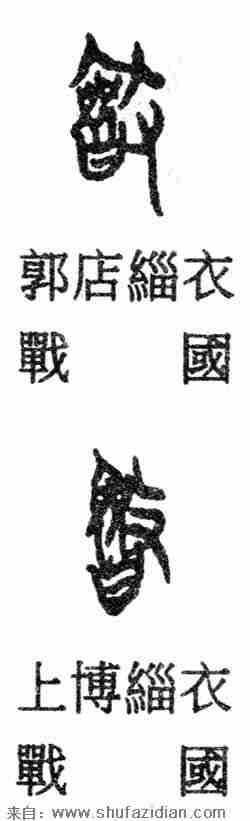 郭店緇衣
戰國
上博緇衣
戰國
来自：www.shufazidian.com